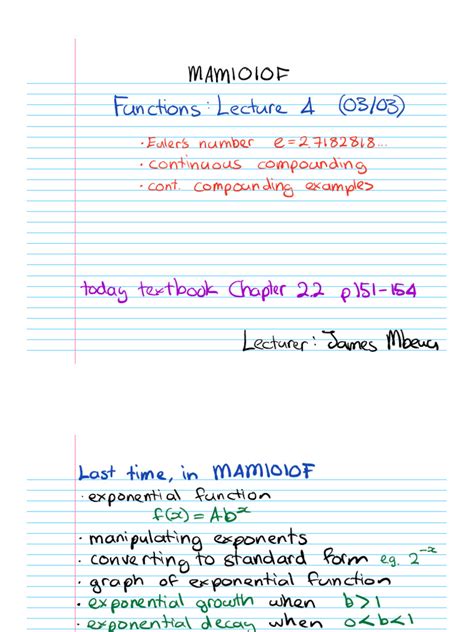 MAM1010F
Functions: Lecture 4 (03/03)
· Euler's number e=2.7182818...
· continuous compounding
· cont. compounding examples
today textbook Chapter 2.2 p151-154
Lecturer: James
Last time, in MAM1010F
· exponential function
f(x) = Ab^x
· manipulating exponents
· converting to standard form eg. 2^-x
· graph of exponential function
· exponential growth when b>1
· exponential decay when 0<b<1